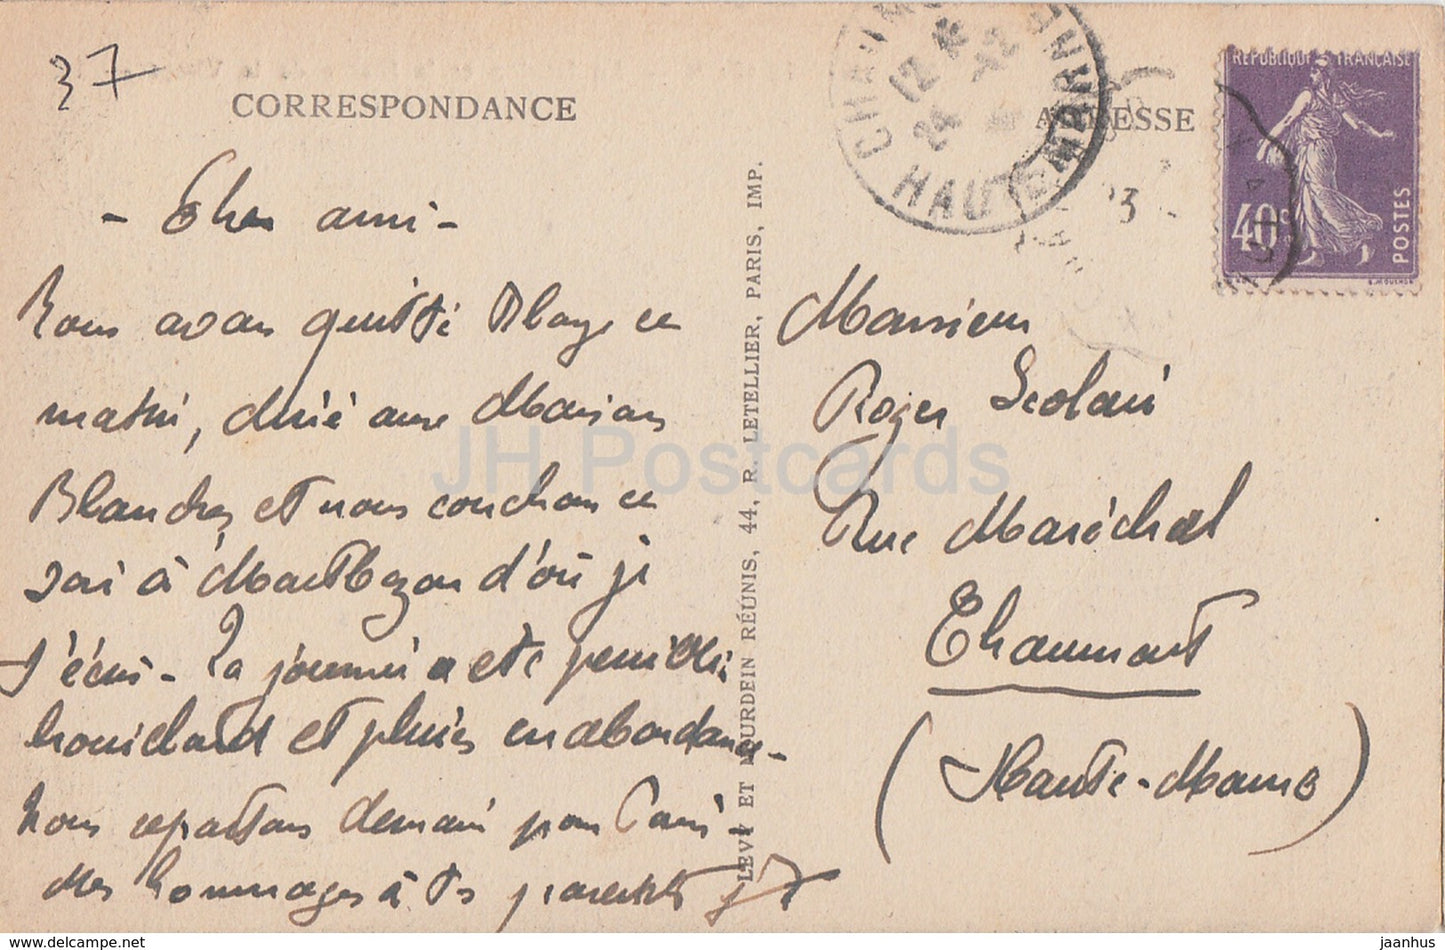 37
CORRESPONDANCE
- Cher ami -
Nous avons quitté Blaye ce
matin, dîné avec Monsieur
Blanchez et nous couchons ce
soir à Montbazon d'où je
t'écris - La journée a été
brouillard et pluies en abondance -
Nous repartons demain pour Paris -
Mes hommages à tes parents
LEVY ET NEURDEIN RÉUNIS, 44, R. LETELLIER, PARIS, IMP.
CHAUMONT
12
24 -12
HAUTE MARNE
ADRESSE
REPUBLIQUE FRANÇAISE
40c
POSTES
Monsieur
Roger Scolari
Rue Maréchal
Chaumont
(Haute-Marne)
JH Postcards
www.delcampe.net
jaanhus